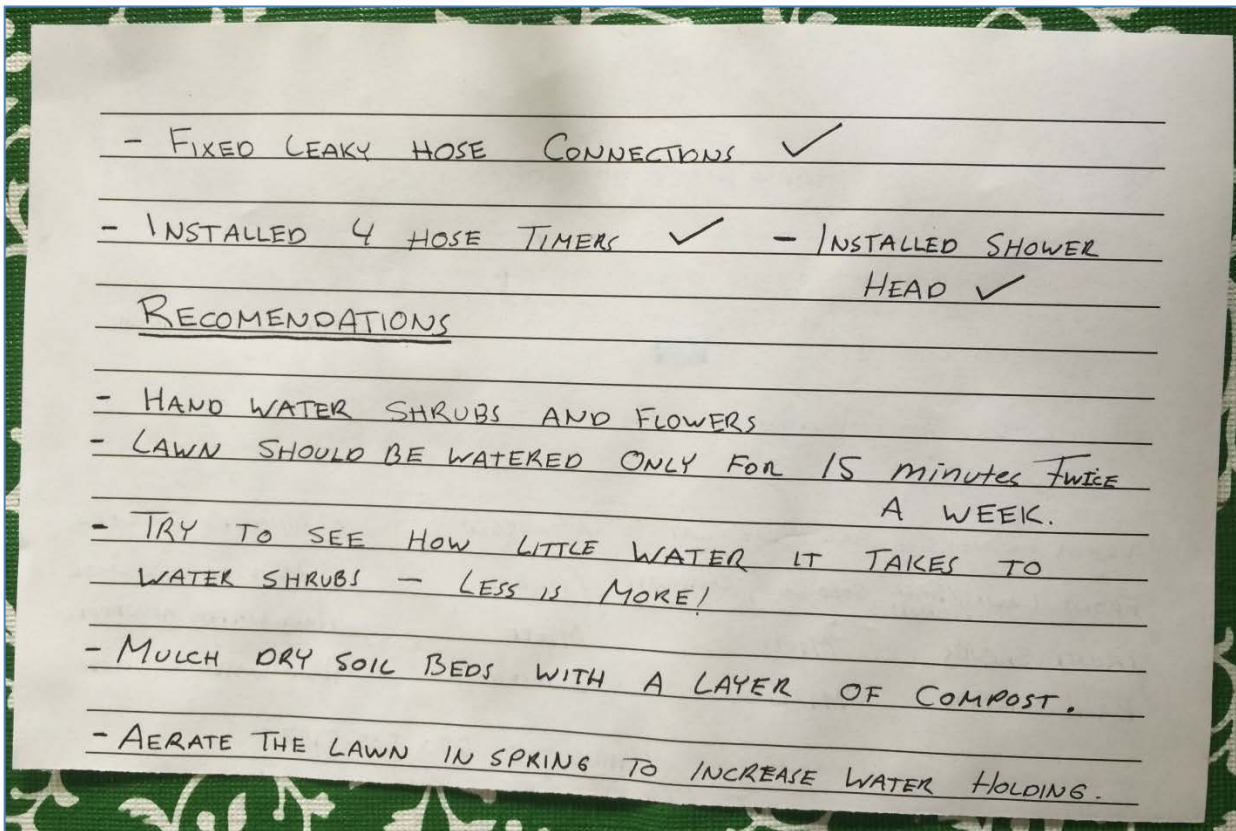 - FIXED LEAKY HOSE CONNECTIONS ✓
- INSTALLED 4 HOSE TIMERS ✓ - INSTALLED SHOWER
HEAD ✓
RECOMENDATIONS
- HAND WATER SHRUBS AND FLOWERS
- LAWN SHOULD BE WATERED ONLY FOR 15 minutes TWICE
A WEEK.
- TRY TO SEE HOW LITTLE WATER IT TAKES TO
WATER SHRUBS - LESS IS MORE!
- MULCH DRY SOIL BEDS WITH A LAYER OF COMPOST.
- AERATE THE LAWN IN SPRING TO INCREASE WATER HOLDING.